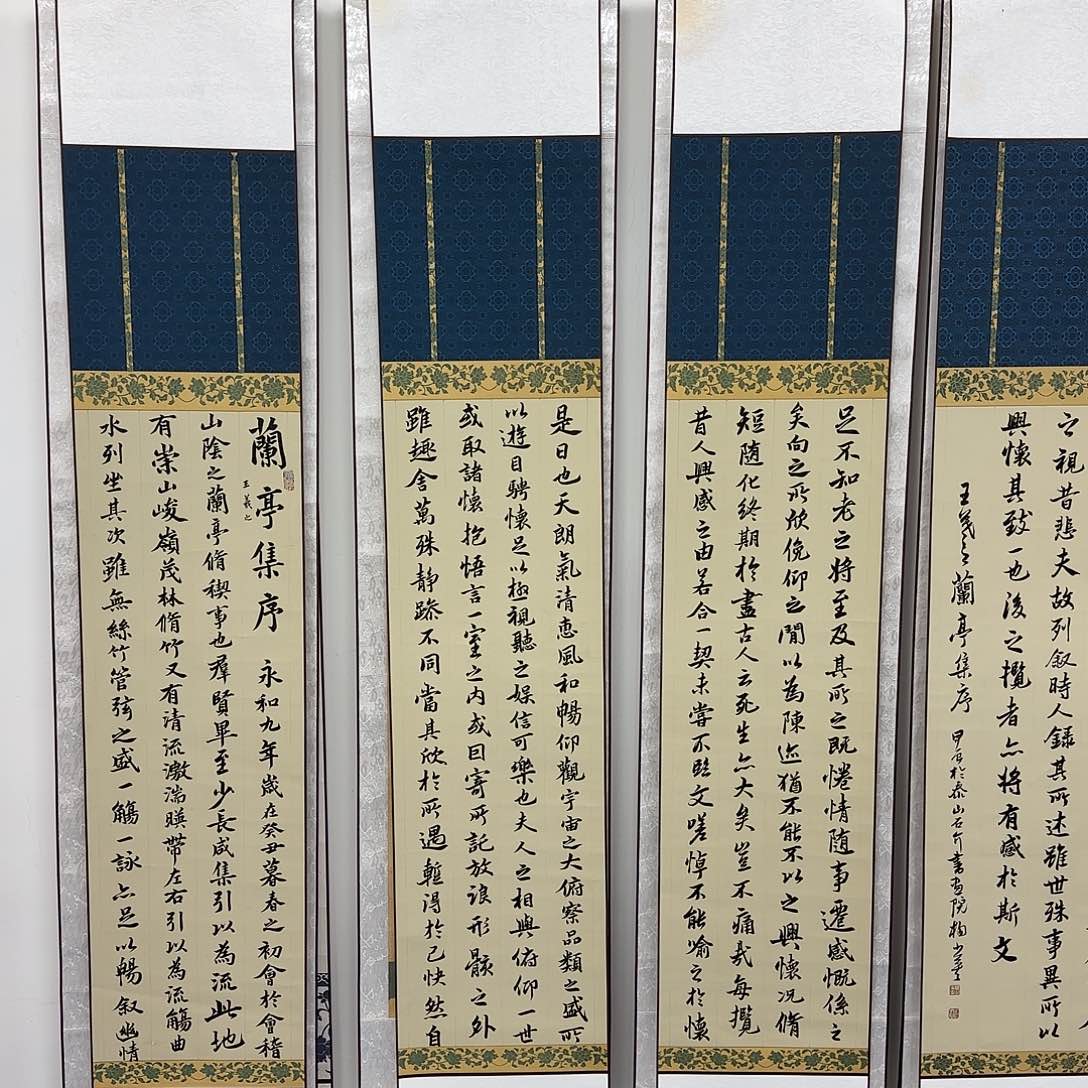 蘭亭集序 永和九年歲在癸丑暮春之初會於會稽
王羲之
山陰之蘭亭脩禊事也羣賢畢至少長咸集引以為流此地
有崇山峻嶺茂林脩竹又有清流激湍暎帶左右引以為流觴曲
水列坐其次雖無絲竹管弦之盛一觴一詠亦足以暢叙幽情
是日也天朗氣清惠風和暢仰觀宇宙之大俯察品類之盛所
以遊目騁懷足以極視聽之娛信可樂也夫人之相與俯仰一世
或取諸懷抱悟言一室之内或因寄所託放浪形骸之外
雖趣舍萬殊静躁不同當其欣於所遇蹔得於己快然自
足不知老之將至及其所之既惓情隨事遷感慨係之
矣向之所欣俛仰之間以為陳迹猶不能不以之興懷况脩
短随化終期於盡古人云死生亦大矣豈不痛哉每攬
昔人興感之由若合一契未甞不臨文嗟悼不能喻之於懷
之視昔悲夫故列叙時人録其所述雖世殊事異所以
興懷其致一也後之攬者亦將有感於斯文
王羲之蘭亭集序 甲辰於泰山石介書画院